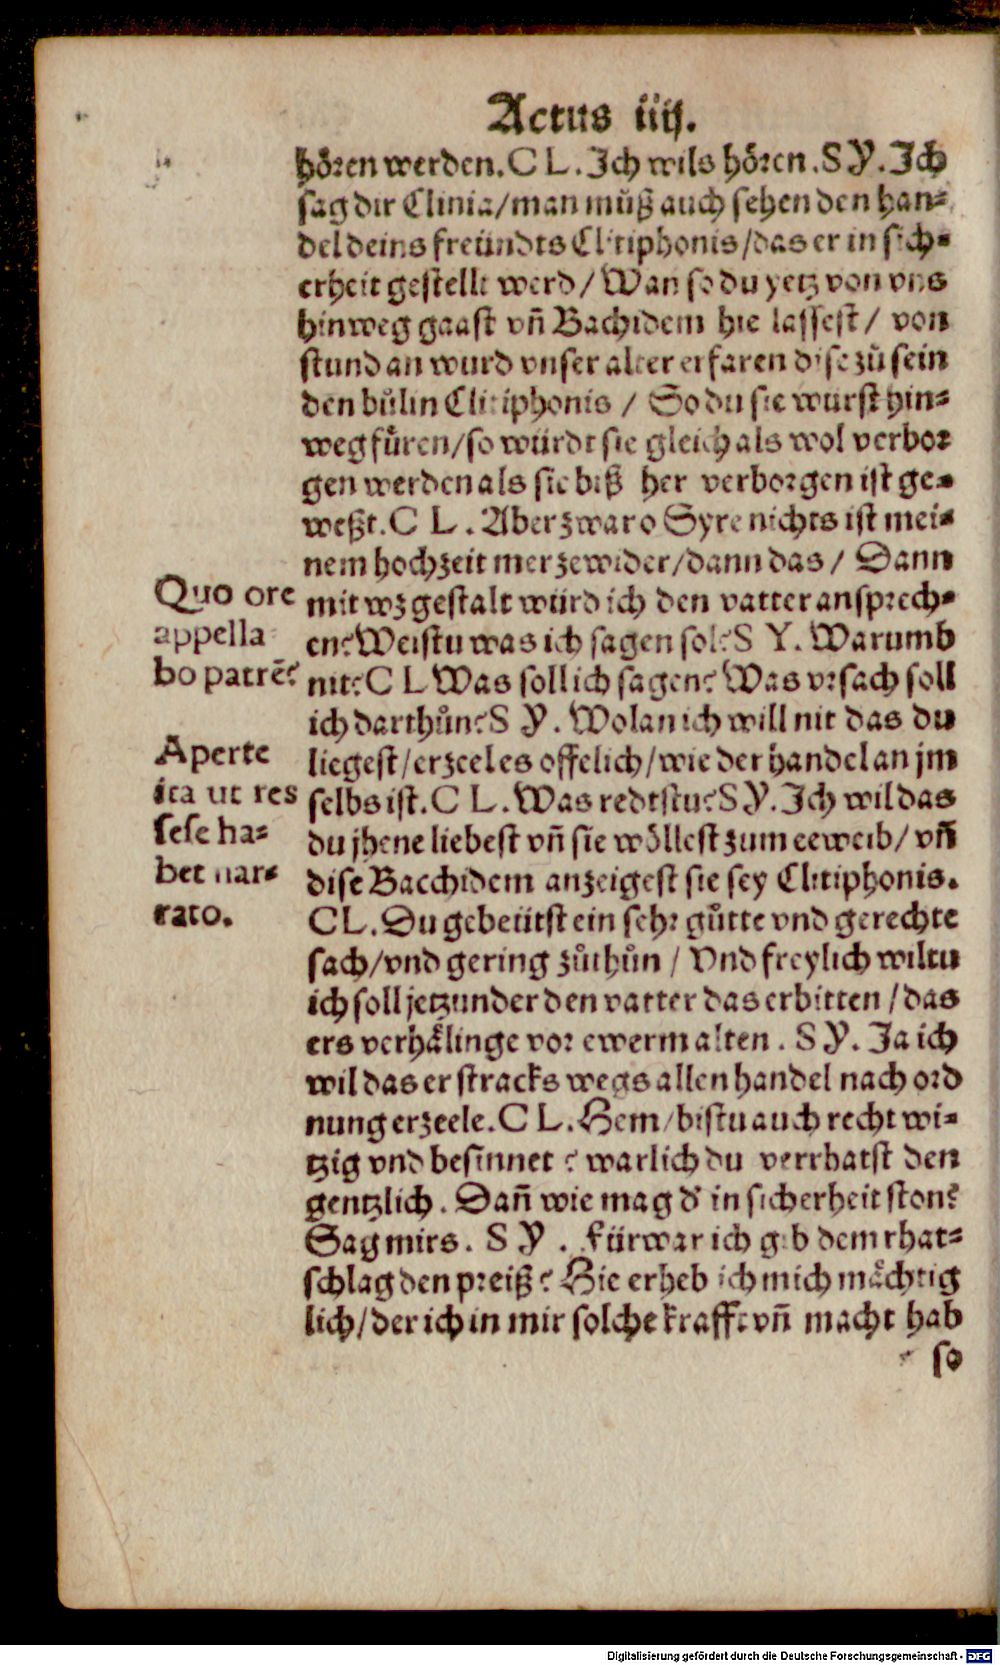 Actus iiij.
hören werden. C L. Ich wils hören. S Y. Ich
sag dir Clinia/man můß auch sehen den han-
del deins freündts Clitiphonis/das er in sich-
erheit gestellt werd/ Wan so du yetz von vns
hinweg gaast vñ Bachidem hie lassest/ von
stund an wurd vnser alter erfaren dise zů sein
den bůlin Clitiphonis / So du sie wurst hin-
weg fůren/so würdt sie gleich als wol verbor
gen werden als sie biß her verborgen ist ge-
weßt. C L. Aber zwar o Syre nichts ist mei-
nem hochzeit mer zewider/dann das/ Dann
mit wz gestalt würd ich den vatter ansprech-
en? Weistu was ich sagen sol? S Y. Warumb
nit? C L Was soll ich sagen? Was vrsach soll
ich darthůn? S Y. Wolan ich will nit das du
liegest/erzeel es offelich/wie der handel an jm
selbs ist. C L. Was redtstu? S Y. Ich wil das
du jhene liebest vñ sie wöllest zum eeweib/ vñ
dise Bacchidem anzeigest sie sey Clitiphonis.
C L. Du gebeütst ein sehr gůtte vnd gerechte
sach/vnd gering zůthůn / Vnd freylich wiltu
ich soll jetzunder den vatter das erbitten/das
ers verhälinge vor ewerm alten. S Y. Ja ich
wil das er stracks wegs allen handel nach ord
nung erzeele. C L. Hem/bistu auch recht wi-
tzig vnd besinnet ? warlich du verrhatst den
gentzlich. Dañ wie mag d' in sicherheit ston?
Sag mirs. S Y. Fürwar ich gib dem rhat-
schlag den preiß? Hie erheb ich mich mächtig
lich/der ich in mir solche krafft vñ macht hab
so
Quo ore
appella
bo patrē?
Aperte
ita ut res
sese ha-
bet nar-
rato.
Digitalisierung gefördert durch die Deutsche Forschungsgemeinschaft - DFG